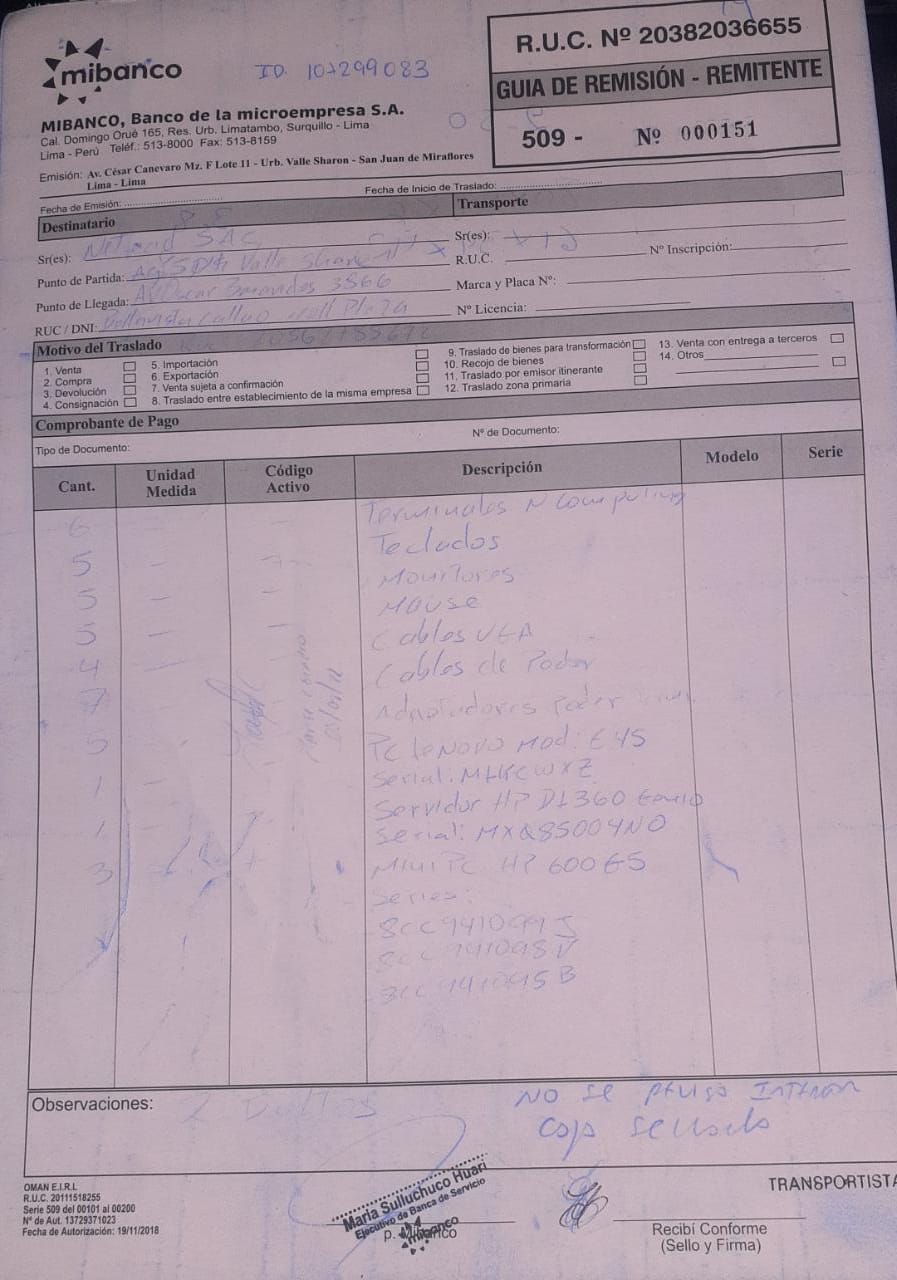 mibanco
ID. 107299083
R.U.C. Nº 20382036655
GUIA DE REMISIÓN - REMITENTE
509 - Nº 000151
MIBANCO, Banco de la microempresa S.A.
Cal. Domingo Orué 165, Res. Urb. Limatambo, Surquillo - Lima
Lima - Perú Teléf.: 513-8000 Fax: 513-8159
Emisión: Av. César Canevaro Mz. F Lote 11 - Urb. Valle Sharon - San Juan de Miraflores
Lima - Lima
Fecha de Emisión: Fecha de Inicio de Traslado:
Destinatario Transporte
Sr(es): SAC Sr(es):
Punto de Partida: Valle Sharon R.U.C. Nº Inscripción:
Punto de Llegada: Av Oscar 3866 Marca y Placa Nº:
RUC / DNI: Bellavista Callao Mall Plaza Nº Licencia:
Motivo del Traslado
1. Venta 5. Importación 9. Traslado de bienes para transformación 13. Venta con entrega a terceros
2. Compra 6. Exportación 10. Recojo de bienes 14. Otros
3. Devolución 7. Venta sujeta a confirmación 11. Traslado por emisor itinerante
4. Consignación 8. Traslado entre establecimiento de la misma empresa 12. Traslado zona primaria
Comprobante de Pago
Tipo de Documento: Nº de Documento:
Cant. Unidad Medida Código Activo Descripción Modelo Serie
6 Terminales N Computing
5 - Teclados
5 - Monitores
5 - Mouse
4 Cables VGA
7 Cables de Poder
5 Adaptadores Poder
1 - PC Lenovo Mod: E45
Serial: MHKCWXZ
1 Servidor HP DL360
Serial: MXQ85004NO
3 Mini Pc HP 600G5
Series:
8CC941099J
8CC941098V
8CC941095B
Observaciones: 2 Bultos NO SE
Caja Sellada
OMAN E.I.R.L
R.U.C. 20111518255
Serie 509 del 00101 al 00200
Nº de Aut. 13729371023
Fecha de Autorización: 19/11/2018
Maria Sulluchuco Huari
Ejecutivo de Banca de Servicio
p. Mibanco
mibanco
TRANSPORTISTA
Recibí Conforme
(Sello y Firma)